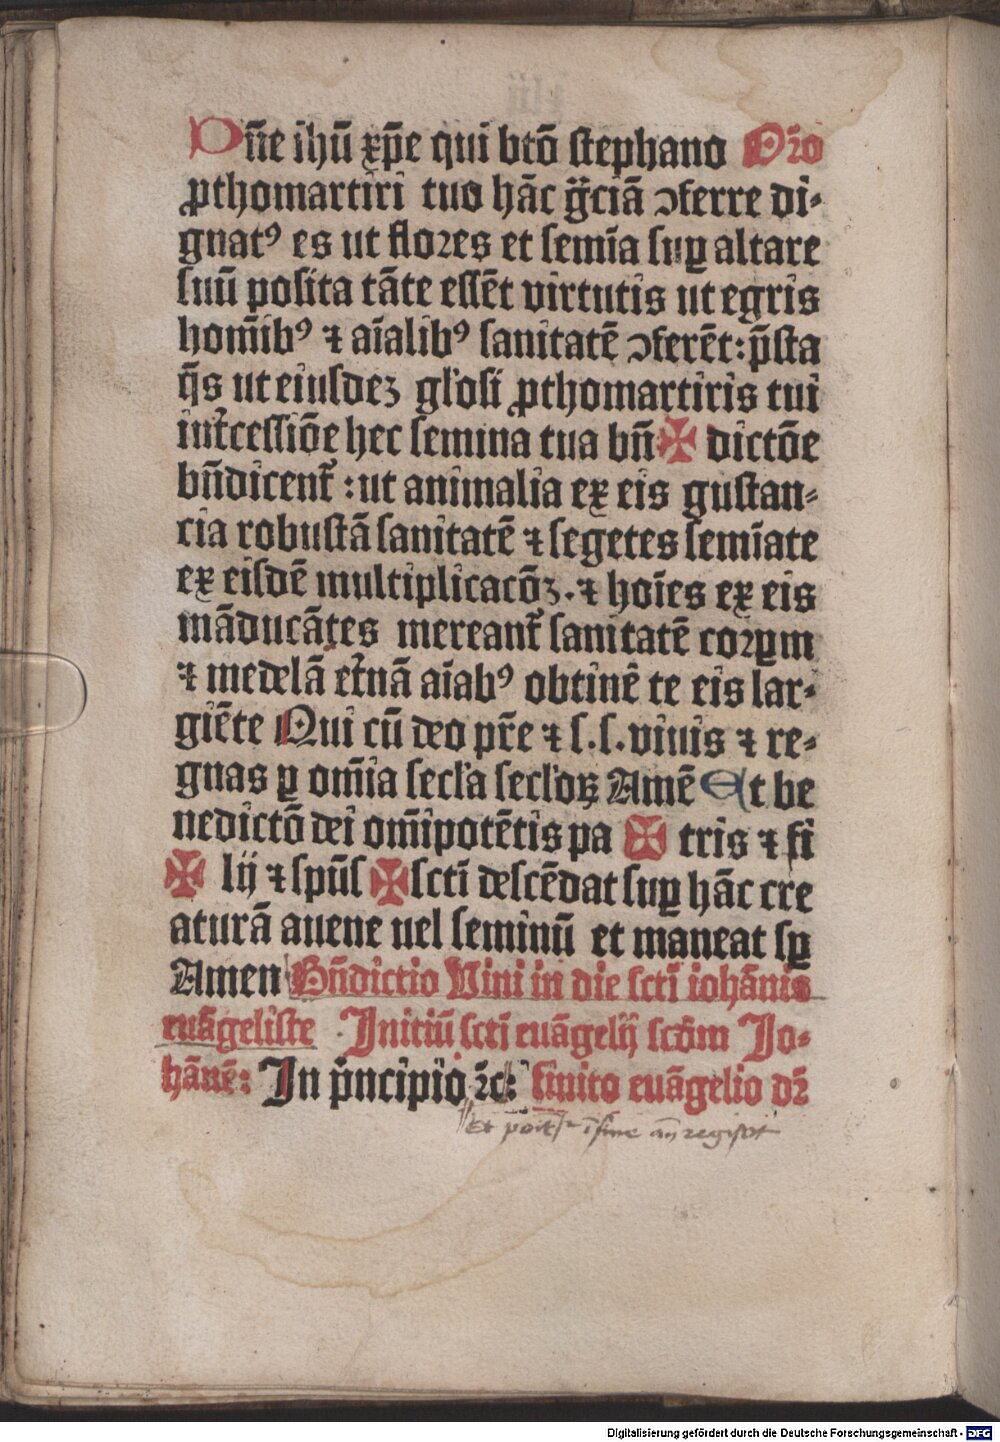 Dn̄e ihū xp̄e qui btō stephano Or̄o
ꝓthomartiri tuo hāc gr̄ciā ↄferre di⸗
gnatꝰ es ut flores et semīa suꝑ altare
suū posita tāte essēt virtutis ut egris
hom̄ibꝰ ⁊ aīalibꝰ sanitatē ↄferēt: p̄sta
q̄s ut eiusdeꝫ glo̓si ꝓthomartiris tui
int̄cessiōe hec semina tua bn̄ ✠ dictōe
bn̄dicent᷑ : ut animalia ex eis gustan⸗
cia robustā sanitatē ⁊ segetes semīate
ex eisdē multiplicacōꝫ . ⁊ hoīes ex eis
māducātes mereant᷑ sanitatē corꝑm
⁊ medelā et̄nā aīabꝰ obtinē te eis lar⸗
giēte Qui cū deo pr̄e ⁊ s . s . viuis ⁊ re⸗
gnas ꝑ om̄ia secl̓a secl̓oꝝ Amē Et be
nedictō dei om̄ipotētis pa ✠ tris ⁊ fi
✠ lij ⁊ spūs ✠ sctī descēdat suꝑ hāc cre
aturā auene uel seminū et maneat sꝑ
Amen Bn̄dictio Vini in die sctī iohānis
euāgeliste Initiū sctī euāgelij scd̄m Jo⸗
hānē: In p̄ncipio ⁊c̄: finito euāgelio dr̄
Et
Digitalisierung gefördert durch die Deutsche Forschungsgemeinschaft - DFG